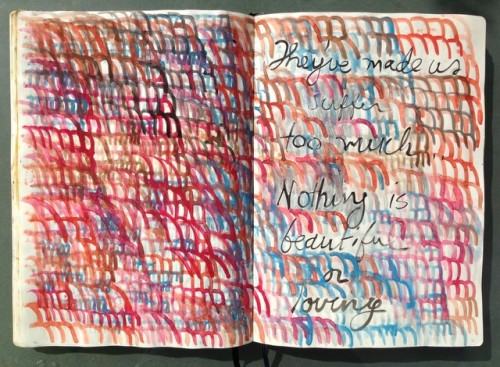 They've made us
suffer
too much!
Nothing is
beautiful
or
loving